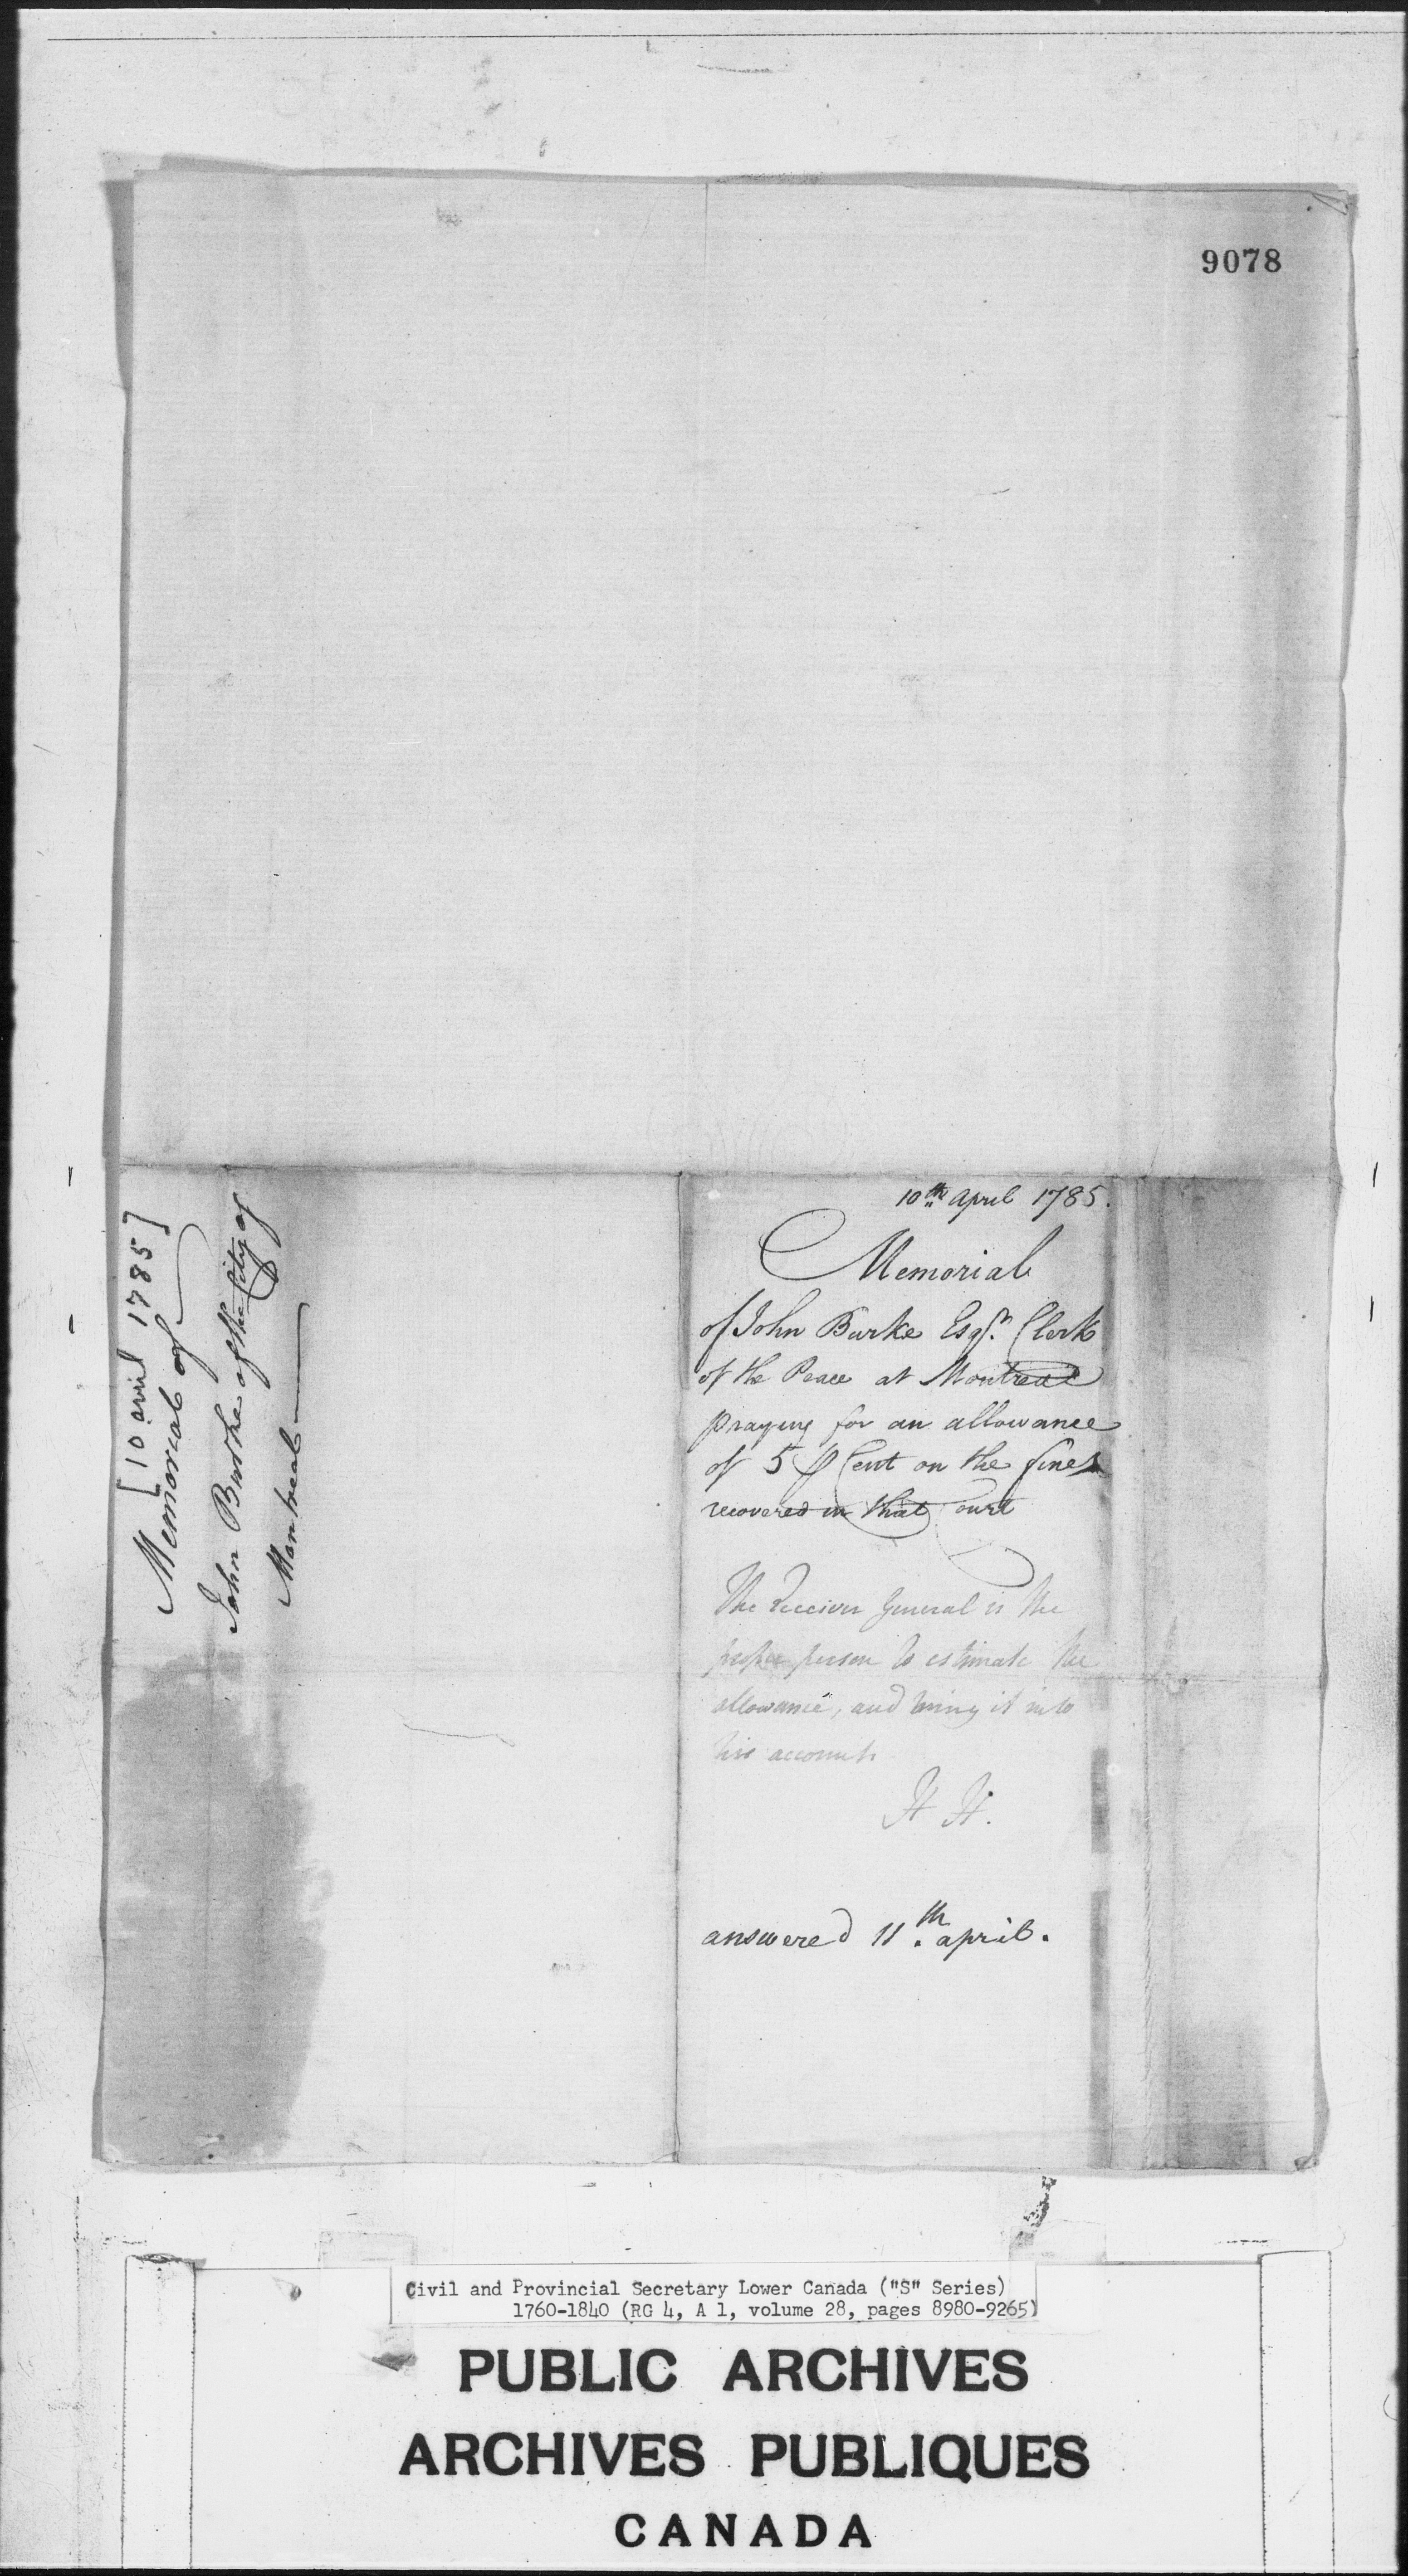 9078
[10 avril 1785]
Memorial of
John Burke of the City of
Montreal
10th April 1785.
Memorial
of John Burke Esqr. Clerk
of the Peace at Montreal
praying for an allowance
of 5 ⅌ Cent on the fines
recovered in that Court
The Receiver General is the
proper person to estimate the
allowance, and bring it into
his accounts
H H.
answered 11th. april.
Civil and Provincial Secretary Lower Canada ("S" Series)
1760-1840 (RG 4, A 1, volume 28, pages 8980-9265)
PUBLIC ARCHIVES
ARCHIVES PUBLIQUES
CANADA